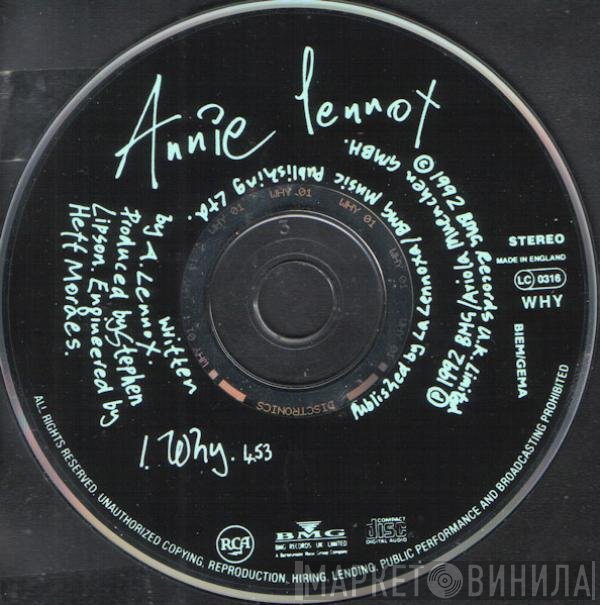 Annie Lennox
1. Why. 4.53
Written
by A Lennox.
Produced by Stephen
Lipson. Engineered by
Heff Moraes.
Published by La Lennoxa/BMG Music Publishing LTD.
℗ 1992 BMG Ariola Muenchen GMBH.
© 1992 BMG Records U.K. Limited
STEREO
MADE IN ENGLAND
LC 0316
WHY
BIEM/GEMA
ALL RIGHTS RESERVED. UNAUTHORIZED COPYING, REPRODUCTION, HIRING, LENDING, PUBLIC PERFORMANCE AND BROADCASTING PROHIBITED
RCA
BMG
BMG RECORDS UK LIMITED
A Bertelsmann Music Group Company
COMPACT
disc
DIGITAL AUDIO
WHY 01
WHY 01
WHY 01
WHY 01
WHY 01
DISCTRONICS
3
МАРКЕТОВИНИЛА!